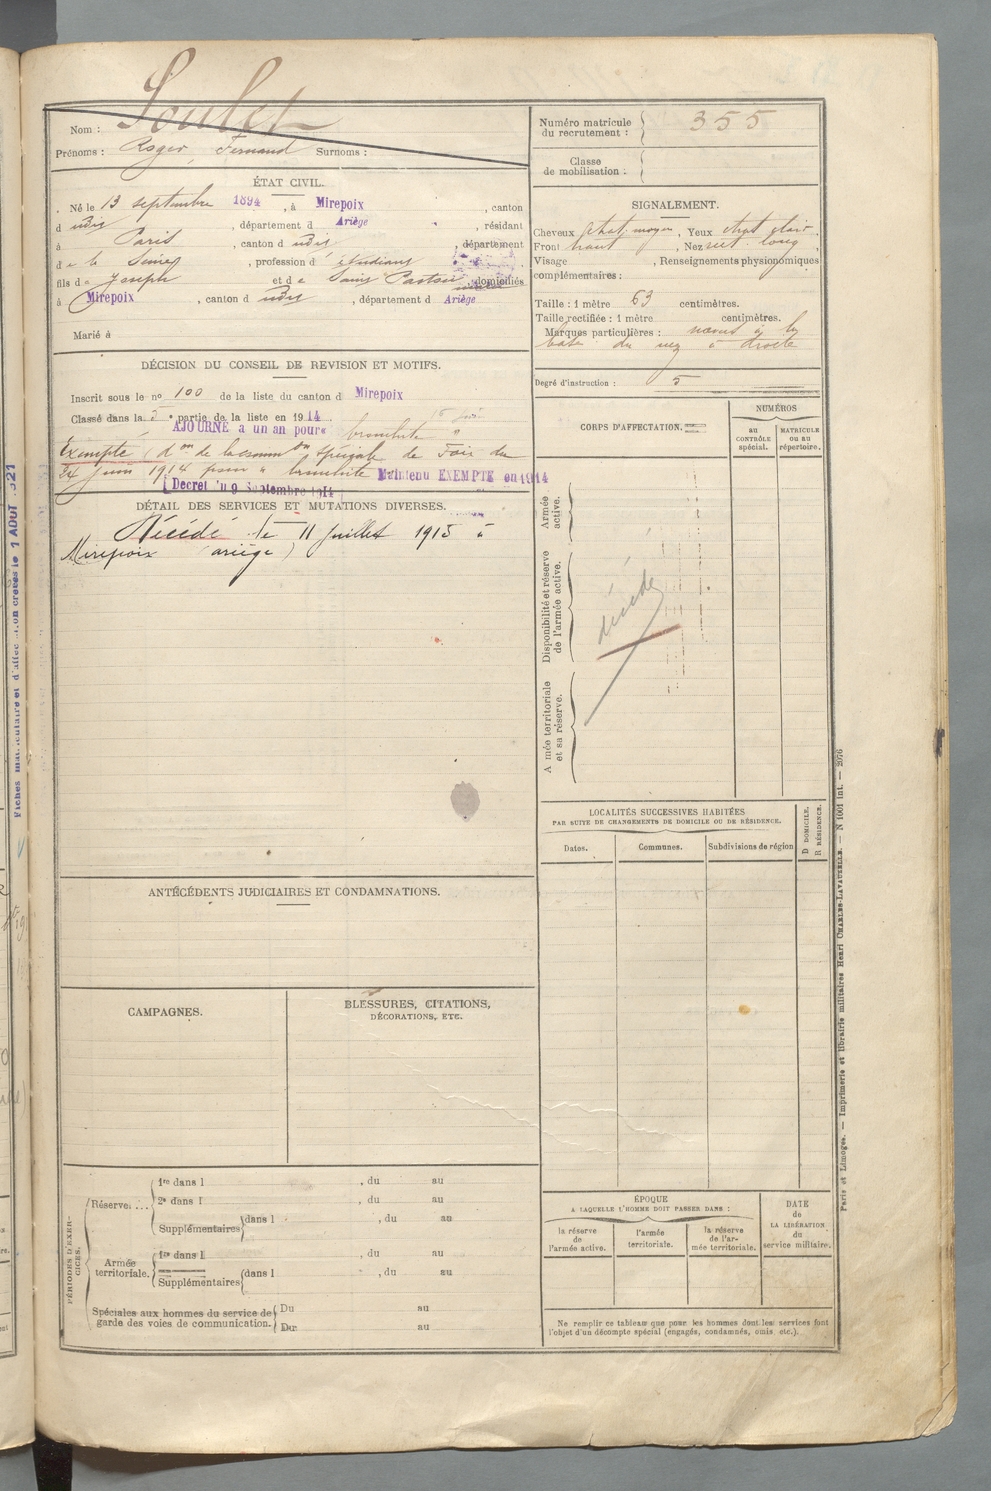 Nom : Soulet
Prénoms : Roger, Fernand Surnoms :
Numéro matricule du recrutement : 355
Classe de mobilisation :
ÉTAT CIVIL.
Né le 13 septembre 1894, à Mirepoix, canton
d udit, département d Ariège, résidant
à Paris, canton d udit, département
d e la Seine, profession d étudiant
fils de Joseph et de domiciliés
à Mirepoix, canton d udit, département d Ariège
Marié à
SIGNALEMENT.
Cheveux chat moyen, Yeux
Front haut, Nez rect. long,
Visage , Renseignements physionomiques
complémentaires :
Taille : 1 mètre 63 centimètres.
Taille rectifiée : 1 mètre centimètres.
Marques particulières : naevus à la
base du nez à droite
Degré d'instruction : 5
DÉCISION DU CONSEIL DE REVISION ET MOTIFS.
Inscrit sous le no 100 de la liste du canton d Mirepoix
Classé dans la 5e partie de la liste en 1914
AJOURNÉ à un an pour « bronchite »
Exempté (don de la comm on spéciale de Foix du
24 juin 1914 pour « bronchite Maintenu EXEMPTÉ en 1914
(Décret du 9 Septembre 1914)
DÉTAIL DES SERVICES ET MUTATIONS DIVERSES.
Décédé le 11 Juillet 1915 à
Mirepoix (ariège)
CORPS D'AFFECTATION.
NUMÉROS
au CONTRÔLE spécial.
MATRICULE ou au répertoire.
Armée active.
Disponibilité et réserve de l'armée active.
décédé
Armée territoriale et sa réserve.
LOCALITÉS SUCCESSIVES HABITÉES
PAR SUITE DE CHANGEMENTS DE DOMICILE OU DE RÉSIDENCE.
Dates.
Communes.
Subdivisions de région
D DOMICILE.
R RÉSIDENCE.
ANTÉCÉDENTS JUDICIAIRES ET CONDAMNATIONS.
CAMPAGNES.
BLESSURES, CITATIONS,
DÉCORATIONS, ETC.
PÉRIODES D'EXERCICES.
Réserve....
1re dans l , du au
2e dans l , du au
Supplémentaires dans l , du au
Armée territoriale.
1re dans l , du au
Supplémentaires dans l , du au
Spéciales aux hommes du service de Du au
garde des voies de communication. Du au
ÉPOQUE
A LAQUELLE L'HOMME DOIT PASSER DANS :
la réserve de l'armée active.
l'armée territoriale.
la réserve de l'armée territoriale.
DATE de LA LIBÉRATION du service militaire.
Ne remplir ce tableau que pour les hommes dont les services font
l'objet d'un décompte spécial (engagés, condamnés, omis, etc.).
Paris et Limoges. — Imprimerie et librairie militaires Henri CHARLES-LAVAUZELLE. — N 1001 int. — 2076